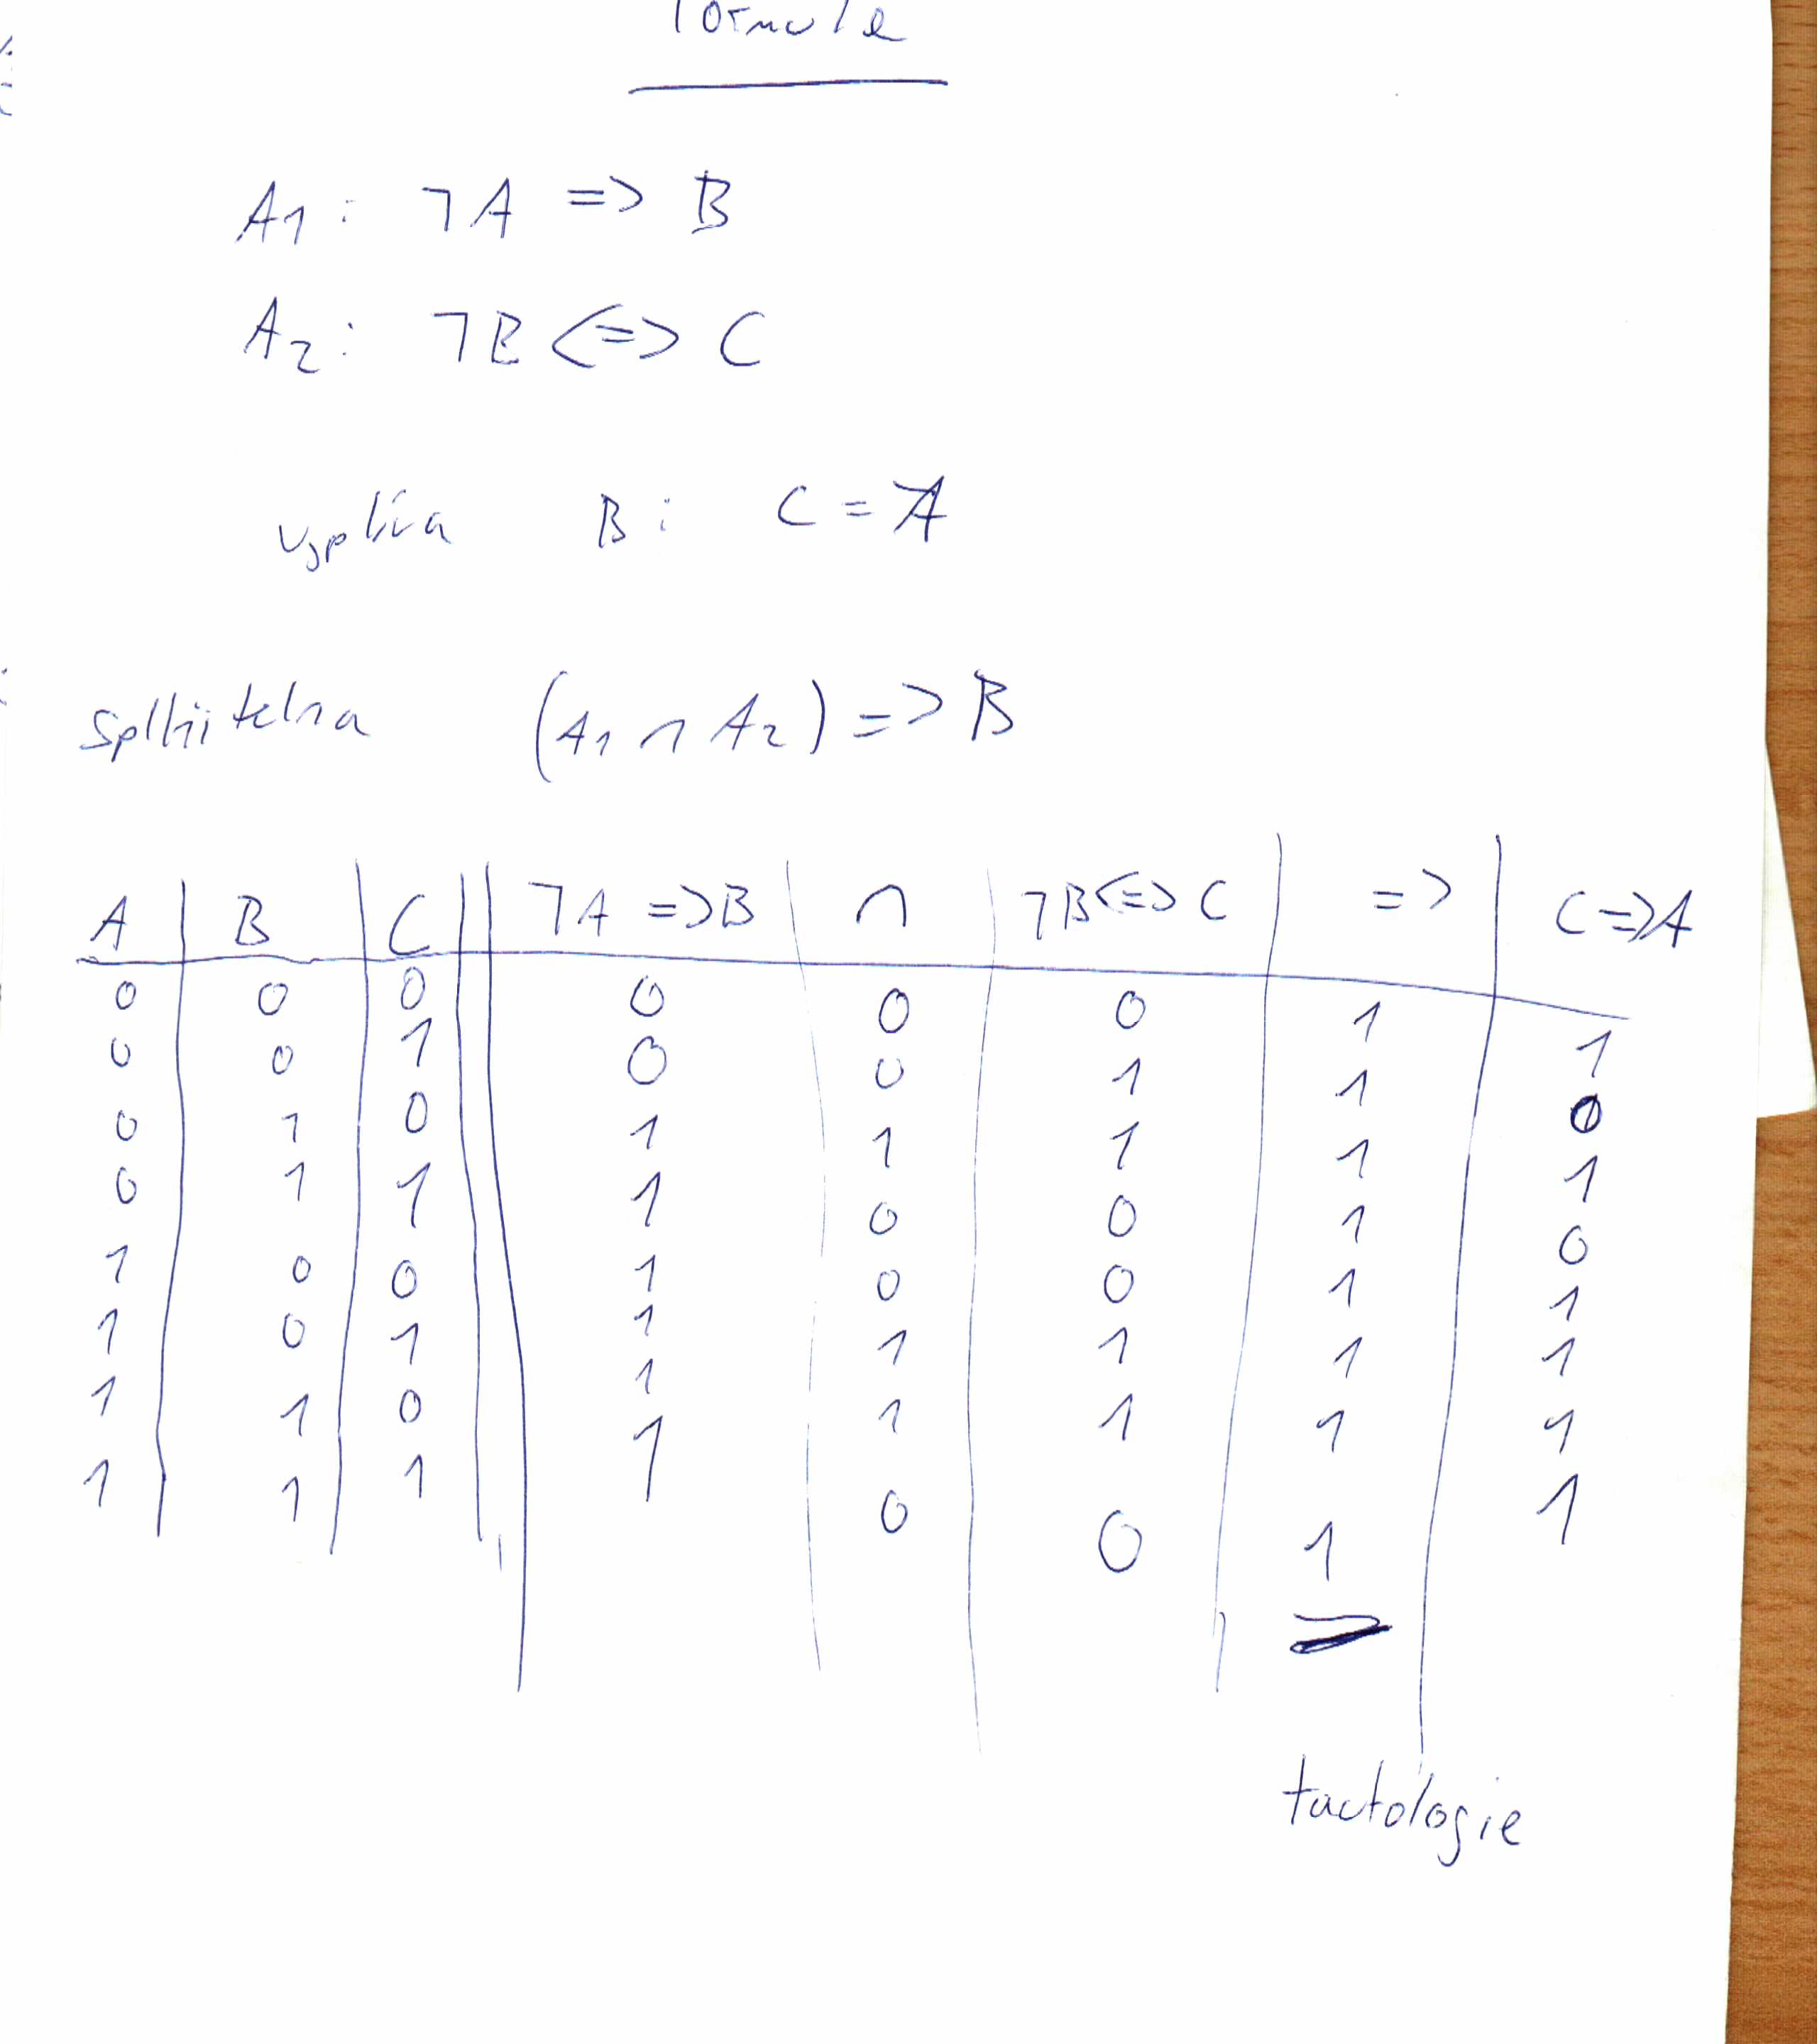 Formule
A1: ¬A => B
A2: ¬B <=> C
vyplívá B: C => A
splnitelná (A1 ∩ A2) => B
A B C ¬A => B ∩ ¬B <=> C => C => A
0 0 0 0 0 0 1 1
0 0 1 0 0 1 1 0
0 1 0 1 1 1 1 1
0 1 1 1 0 0 1 0
1 0 0 1 0 0 1 1
1 0 1 1 1 1 1 1
1 1 0 1 1 1 1 1
1 1 1 1 0 0 1 1
tautologie